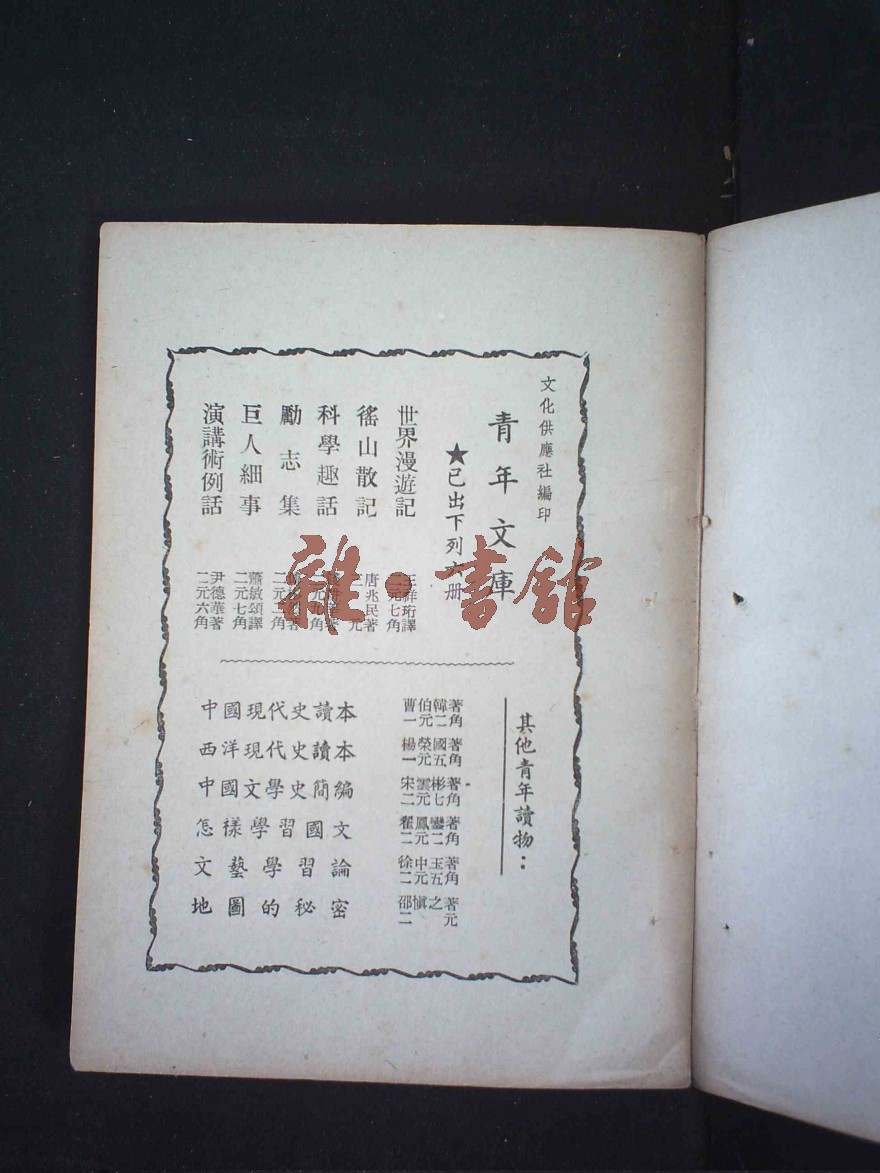 文化供應社編印
青年文庫
★已出下列六册
世界漫遊記
王祥珩譯
元七角
徭山散記
唐兆民著
元
科學趣話
勵志集
巨人細事
蕭敏頌譯
二元七角
演講術例話
尹德華著
二元六角
其他青年讀物：
中國現代史讀本
曹伯韓著
一元二角
西洋現代史讀本
楊榮國著
一元五角
中國文學史簡編
宋雲彬著
二元七角
怎樣學習國文
翟鳳鑾著
二元二角
文藝學習論
徐中玉著
二元五角
地圖的秘密
邵慎之著
二元
雜·書館